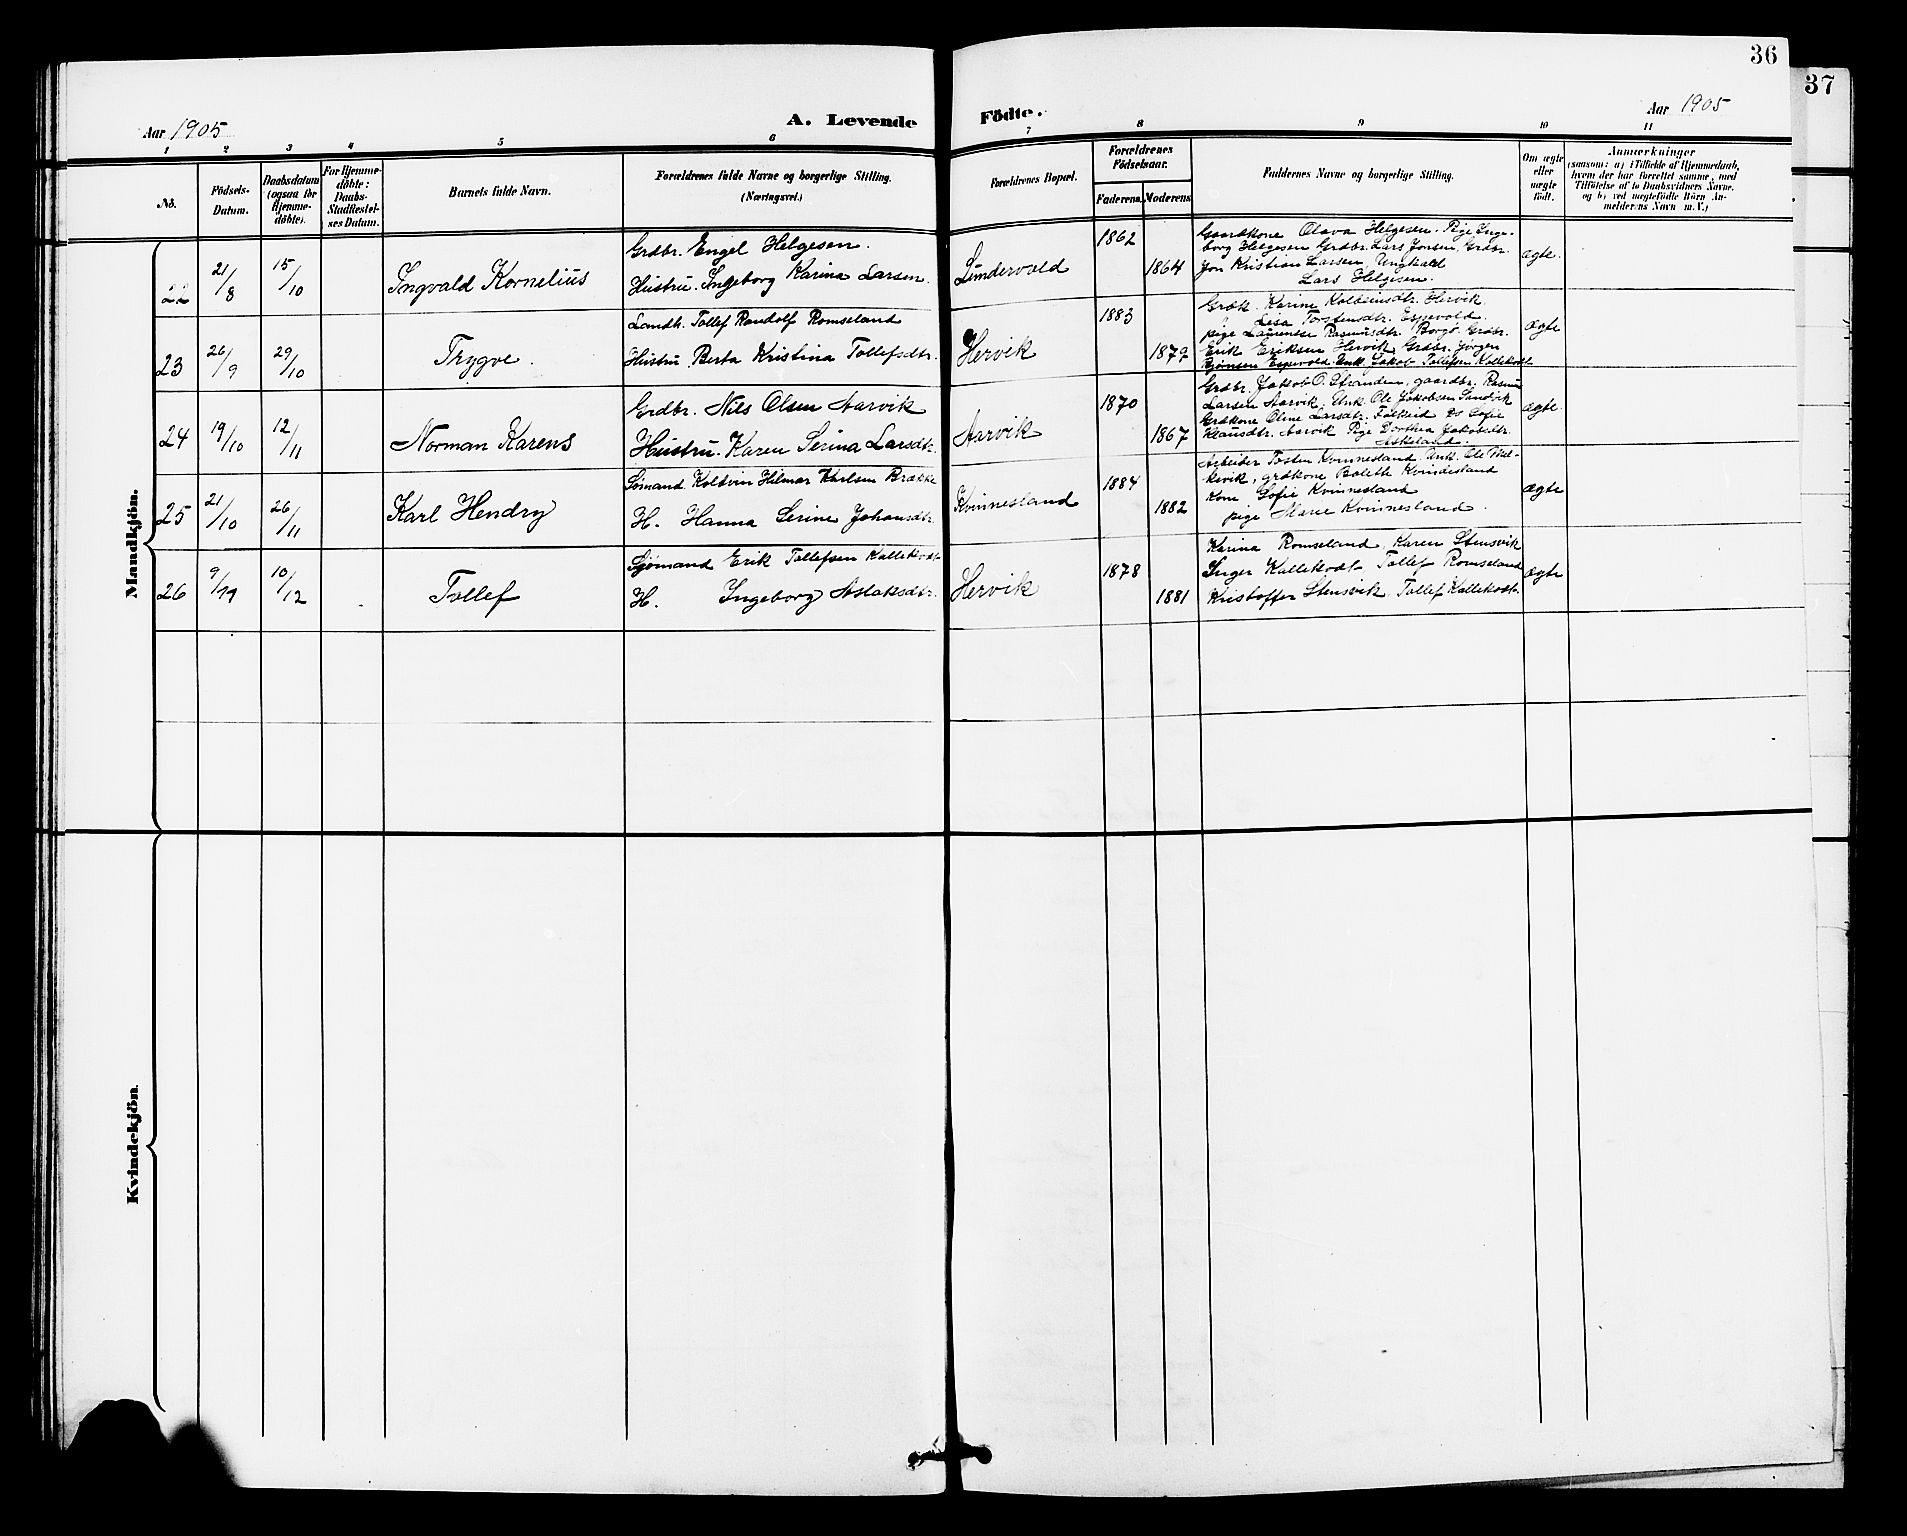 36
37
Aar 1905
A. Levende Födte.
Aar 1905
1 2 3 4 5 6 7 8 9 10 11
No.
Födsels-Datum.
Daabsdatum (ogsaa för Hjemme-döbte).
For Hjemme-döbte: Daabs-Stadfæstel-ses Datum.
Barnets fulde Navn.
Forældrenes fulde Navne og borgerlige Stilling.
(Næringsvei.)
Forældrenes Bopæl.
Forældrenes Födselsaar.
Faderens. Moderens.
Faddernes Navne og borgerlige Stilling.
Om ægte eller uægte födt.
Anmærkninger
(saasom: a) i Tilfælde af Hjemmedaab,
hvem der har forrettet samme, med
Tilföielse af to Daabsvidners Navne.
og b) ved uægtefödte Börn An-
melderens Navn m. V.)
Mandkjön.
22 21/8 15/10 Ingvald Kornelius
Grdbr. Engel Helgesen.
Hustru. Ingeborg Karina Larsen.
Lundervold 1862 1864
Gaardkone Olava Helgesen. Pige Inge-
borg Helgesen Grdbr. Lars Jonsen, Grdbr.
Jon Kristian Larsen, Ungkald
Lars Helgesen.
ægte.
23 26/9 29/10 Trygve.
Landh. Tollef Randolf Romseland
Hustru Berta Kristina Tollefsdtr.
Hervik 1883 1879
Grdk. Karine Kolbeinsdtr. Hervik
Lisa Torstensdtr. Espevold.
pige Laurentse Rasmusdtr. Borgö. Grdbr.
Erik Eriksen Hervik, Grdbr. Jörgen
Bjönsen Espevold. Unk. Jakob Tollefsen Kallekodt
ægte
24 19/10 12/11 Norman Karens
Grdbr. Nils Olsen Aarvik
Hustru. Karen Serina Larsdtr.
Aarvik 1870 1867
Grdbr. Jakob O. Stranden, gaardbr. Rasmus
Larsen Aarvik. Unk. Ole Jakobsen Sandvik
Grdkone Oline Larsdtr. Falkeid Ds Sofie
Klausdtr. Aarvik Pige Dorthea Jakobsdtr.
Askeland.
ægte.
25 21/10 26/11 Karl Hendry
Sömand Koldvin Hilmar Karlsen Brække
H. Hanna Serine Johansdtr.
Kvinnesland 1884 1882
Arbeider Tosten Kvinnesland. Unk. Ole
kevik, grdkone Bolette Kvindesland
Kone Sofie Kvinnesland
pige Marie Kvinnesland.
ægte
26 9/11 10/12 Tollef
Sjömand Erik Tollefsen Kallekodt
H. Ingeborg Aslaksdtr.
Hervik 1878 1881
Karina Romseland, Karen Stensvik
Inger Kallekodt Tollef Romseland
Kristoffer Stensvik, Tollef Kallekodt.
ægte
Kvindekjön.